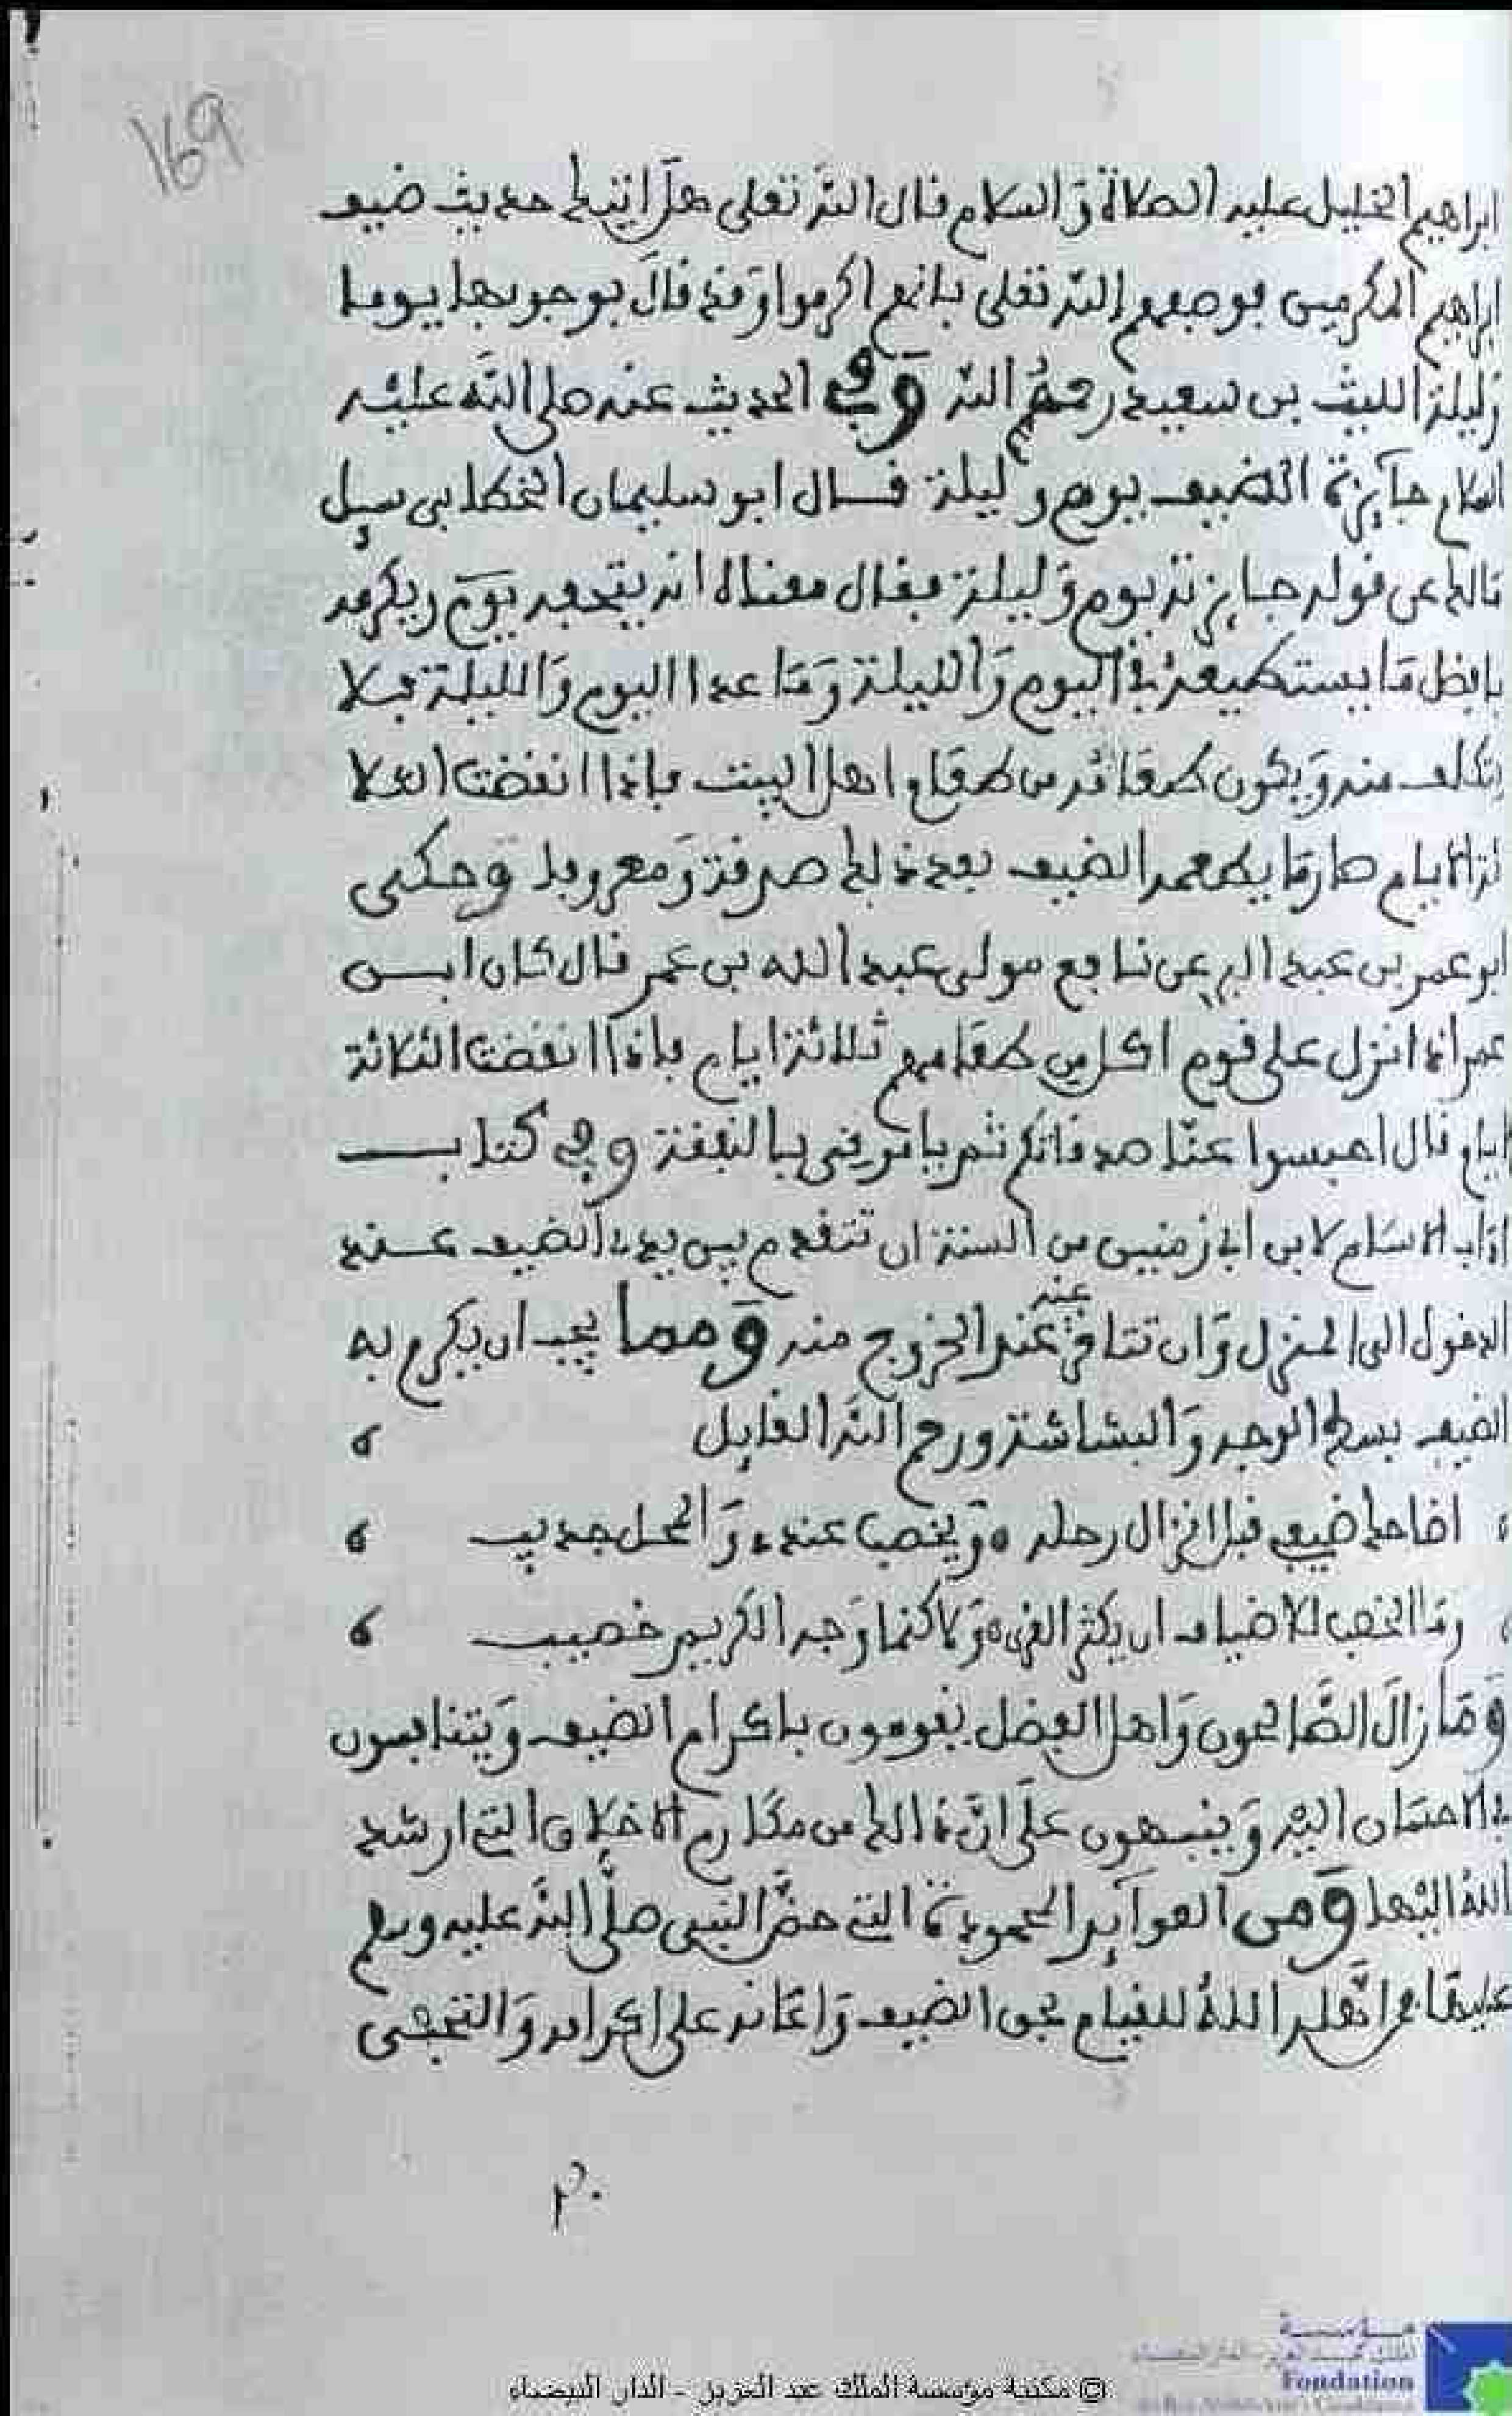 169
ابراهيم الخليل عليه الصلاة وَالسلام فال الله تعلى هلَ اتيك حديث ضيف
ابراهيم المكرمين فوصفهم الله تعلى بانهم اكرموا وَفد فالَ بوجوبها يوما
وَليلة الليث بن سعيد رحمهُ الله وَفي الحديث عنه صلى اللَّه عليْه
السلام جآئزة الضيف يوم وليلة فال ابو سليمان الخطابي سيل
مالك عن فوله جايزته يوم وَليلة ففال معناه انه يتحفه يوم ويكرمه
بافظل مَا يستطيعهُ في اليوم وَالليلة وَمَا عدا اليوم وَالليلة فلا
يتكلف منه وَيكون طعَامُه من طعَام اهل البيت فاذا انفضت الثلا
ثة الايام صار مَا يطعمه الضيف بعد ذلك صدفة وَمعروفا وَحكى
ابو عمر بن عبد البر عن نافع مولى عبد الله بن عمر فال كان ابن
عمر اذا نزل على فوم اكل من طعَامهم ثلاثة ايام فاذا انفضت الثلاثة
ايام فال احبسوا عنّا صدفاتكم ثم يامرني بالنفِفة وفي كتاب
اداب الاسلام لابن ابي زمنين من السنة ان تتفدم بين يدي الضيف عند
الدخول الى المنزل وَان تتاخر عنه عند الخروج منه وَمما يجب ان يكرم به
الضيف بسط الوجه وَالبشاشة ورحم الله الفايل
اضاحك ضيفي فبل انزال رحله وَيخصب عندي وَالمحل جديب
وما الخصب للاضياف ان يكثر الفرى وَلاكنما وَجه الكريم خصيب
وَمَا زالَ الصَّالحون وَاهل الفضل يفومون باكرام الضيف وَيتنافسون
في الاحسَان اليْه وَينبهون علَى انَّ ذالك من مكَارم الاخلاق التي ارشد
اللهُ اليْها وَمن العوآيد المحمودة التي حضَّ النبي صلَّى اللَّه عليه وسلم
عليها من اهَّله اللهُ للفيام بحق الضيف وَاعَانه على اكرامه وَالتحفي
© مكتبة مؤسسة الملك عبد العزيز - الدار البيضاء
مؤسسة
Fondation